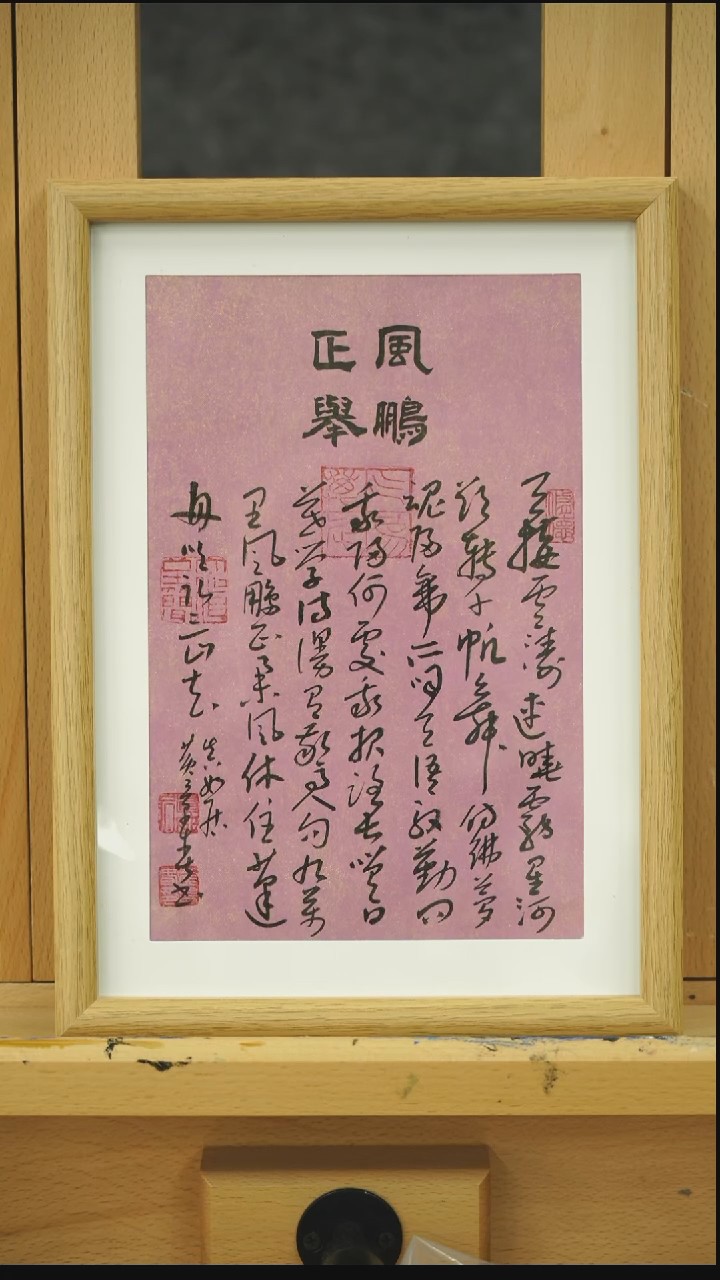 風鵬
正舉
天接雲濤連曉霧星河
欲轉千帆舞仿佛夢
魂歸帝所聞天語殷勤問
我歸何處我報路長嗟日
暮學詩謾有驚人句九萬
里風鵬正舉風休住蓬
舟吹取三山去
真如居